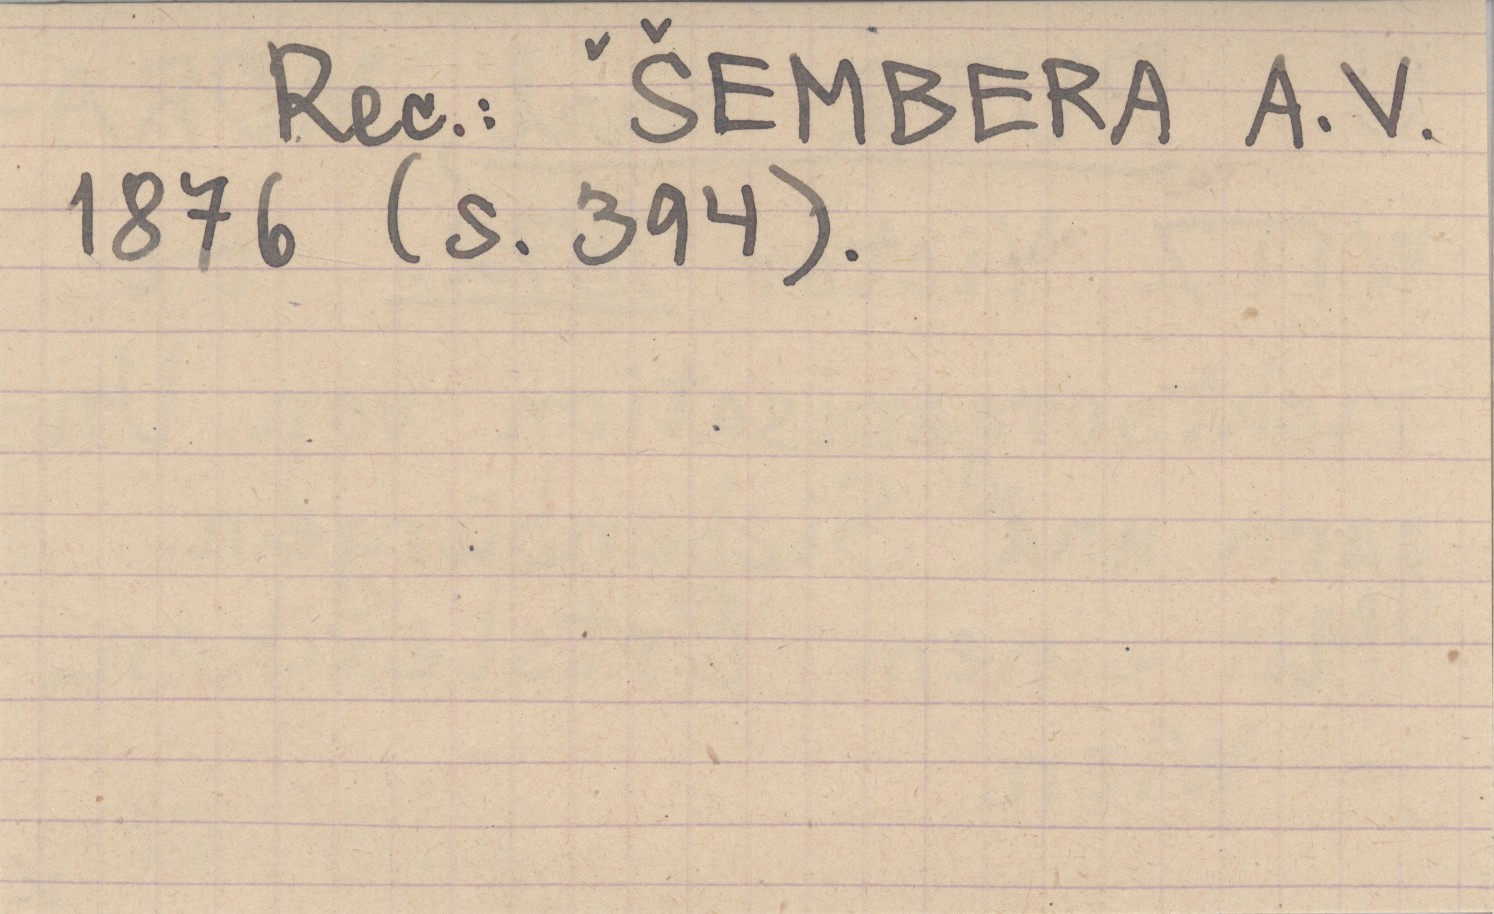 Rec.: ˇŠEMBERA A.V.
1876 (s. 394).